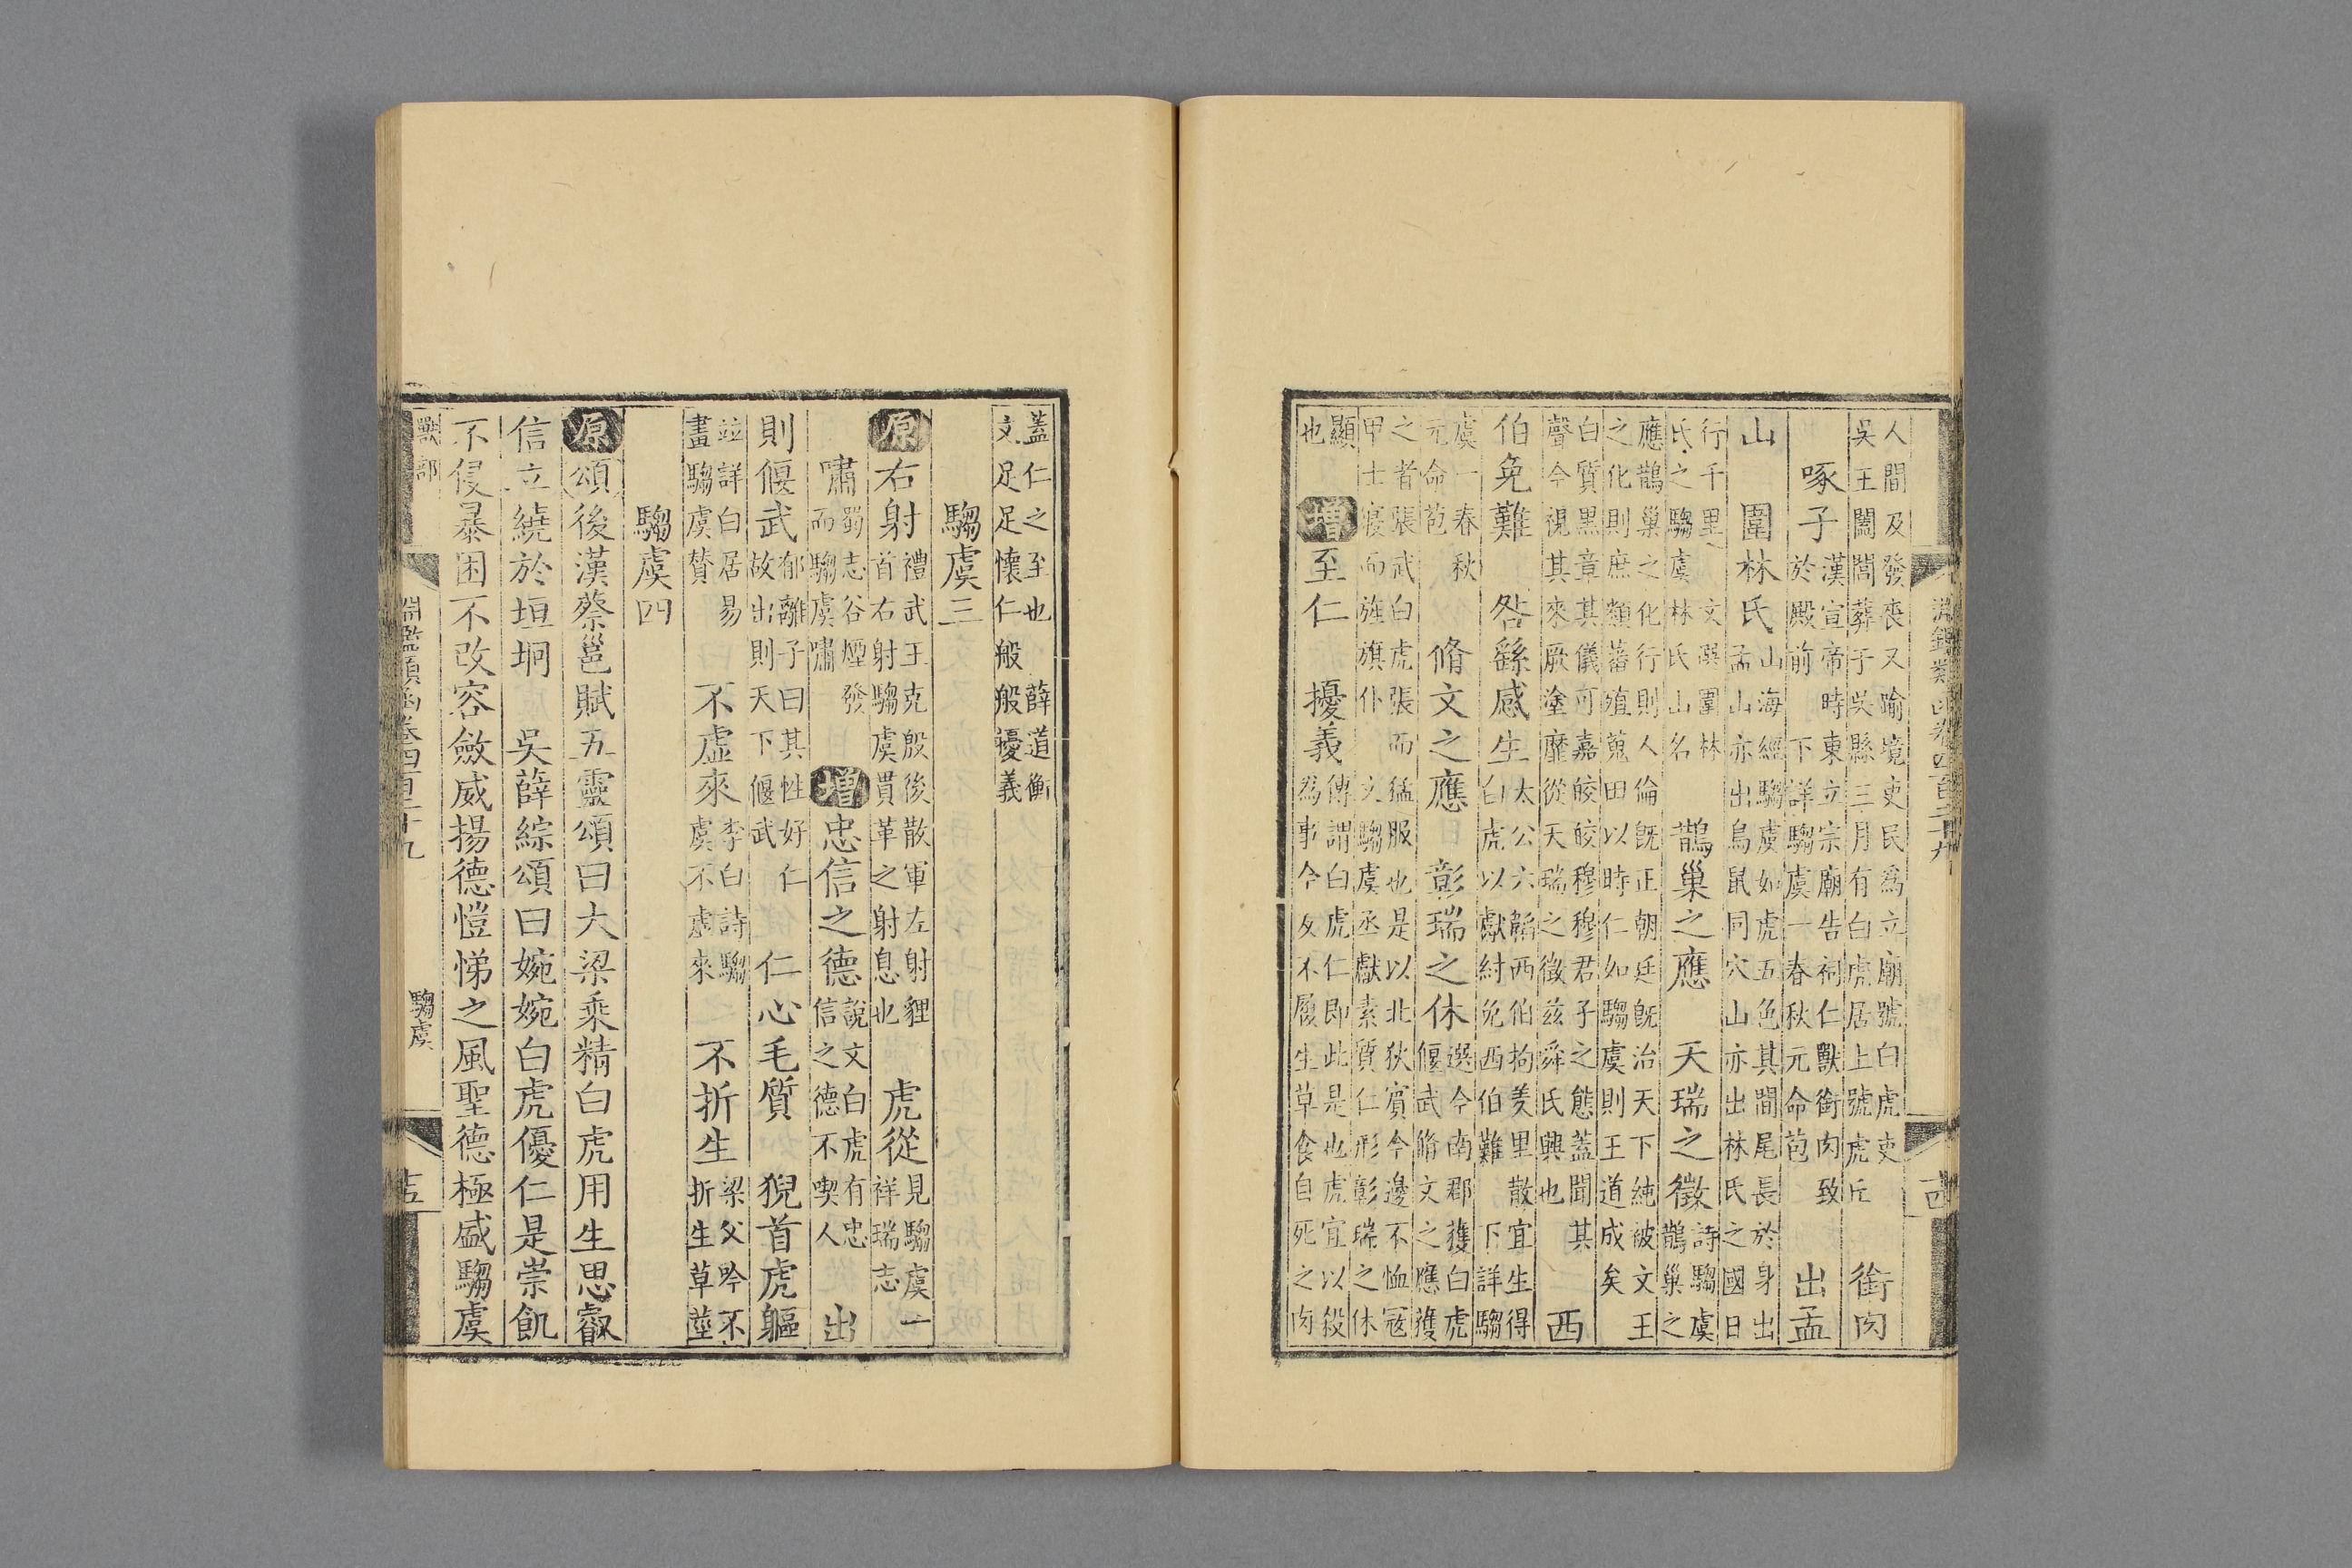 淵鑑類函卷四百二十九 十四
人間及發喪又踰境吏民爲立廟號白虎吏
吳王闔閭葬于吳縣三月有白虎居上號虎丘 銜肉
啄子 漢宣帝時東立宗廟告祠仁獸銜肉致
於殿前 下詳騶虞一春秋元命苞 出孟
山 圍林氏 山海經騶虞如虎五色其間尾長於身出
孟山山亦出鳥鼠同穴山亦出林氏之國日
行千里 文選圍林
氏之騶虞林氏山名 鵲巢之應 天瑞之徵 詩騶虞
鵲巢之
應鵲巢之化行則人倫旣正朝廷旣治天下純被文王
之化則庶類蕃殖蒐田以時仁如騶虞則王道成矣
白質黑章其儀可嘉皎皎穆穆君子之態蓋聞其
聲今視其來厥塗靡從天瑞之徵茲舜氏興也 西
伯免難 咎繇感生 太公六韜西伯拘羑里散宜生得
白虎以獻紂免西伯難 下詳騶
虞一春秋
元命苞 脩文之應 彰瑞之休 選今南郡獲白虎
偃武脩文之應獲
之者張武白虎張而猛服也是以北狄賓今邊不恤寇
甲士寢而旌旗仆 文騶虞丞獻素質仁形彰瑞之休
顯
也 增 至仁 擾義 傳謂白虎仁即此是也虎宜以殺
爲事今反不履生草食自死之肉
蓋仁之至也 薛道衡
文足足懷仁般般擾義
騶虞三
原 右射 禮武王克殷後散軍左射貍
首右射騶虞貫革之射息也 虎從 見騶虞一
祥瑞志
嘯 蜀志谷煙發
而騶虞嘯 增 忠信之德 說文白虎有忠
信之德不喫人 出
則偃武 郁離子曰其性好仁
故出則天下偃武 仁心毛質 猊首虎軀
並詳白居易
畫騶虞贊 不虛來 李白詩騶
虞不虛來 不折生 梁父吟不
折生草莖
騶虞四
原 頌 後漢蔡邕賦五靈頌曰大梁乘精白虎用生思叡
信立繞於垣坰 吳薛綜頌曰婉婉白虎優仁是崇飢
不侵暴困不改容斂威揚德愷悌之風聖德極盛騶虞
獸部 淵鑑類函卷四百二十九 騶虞 十五